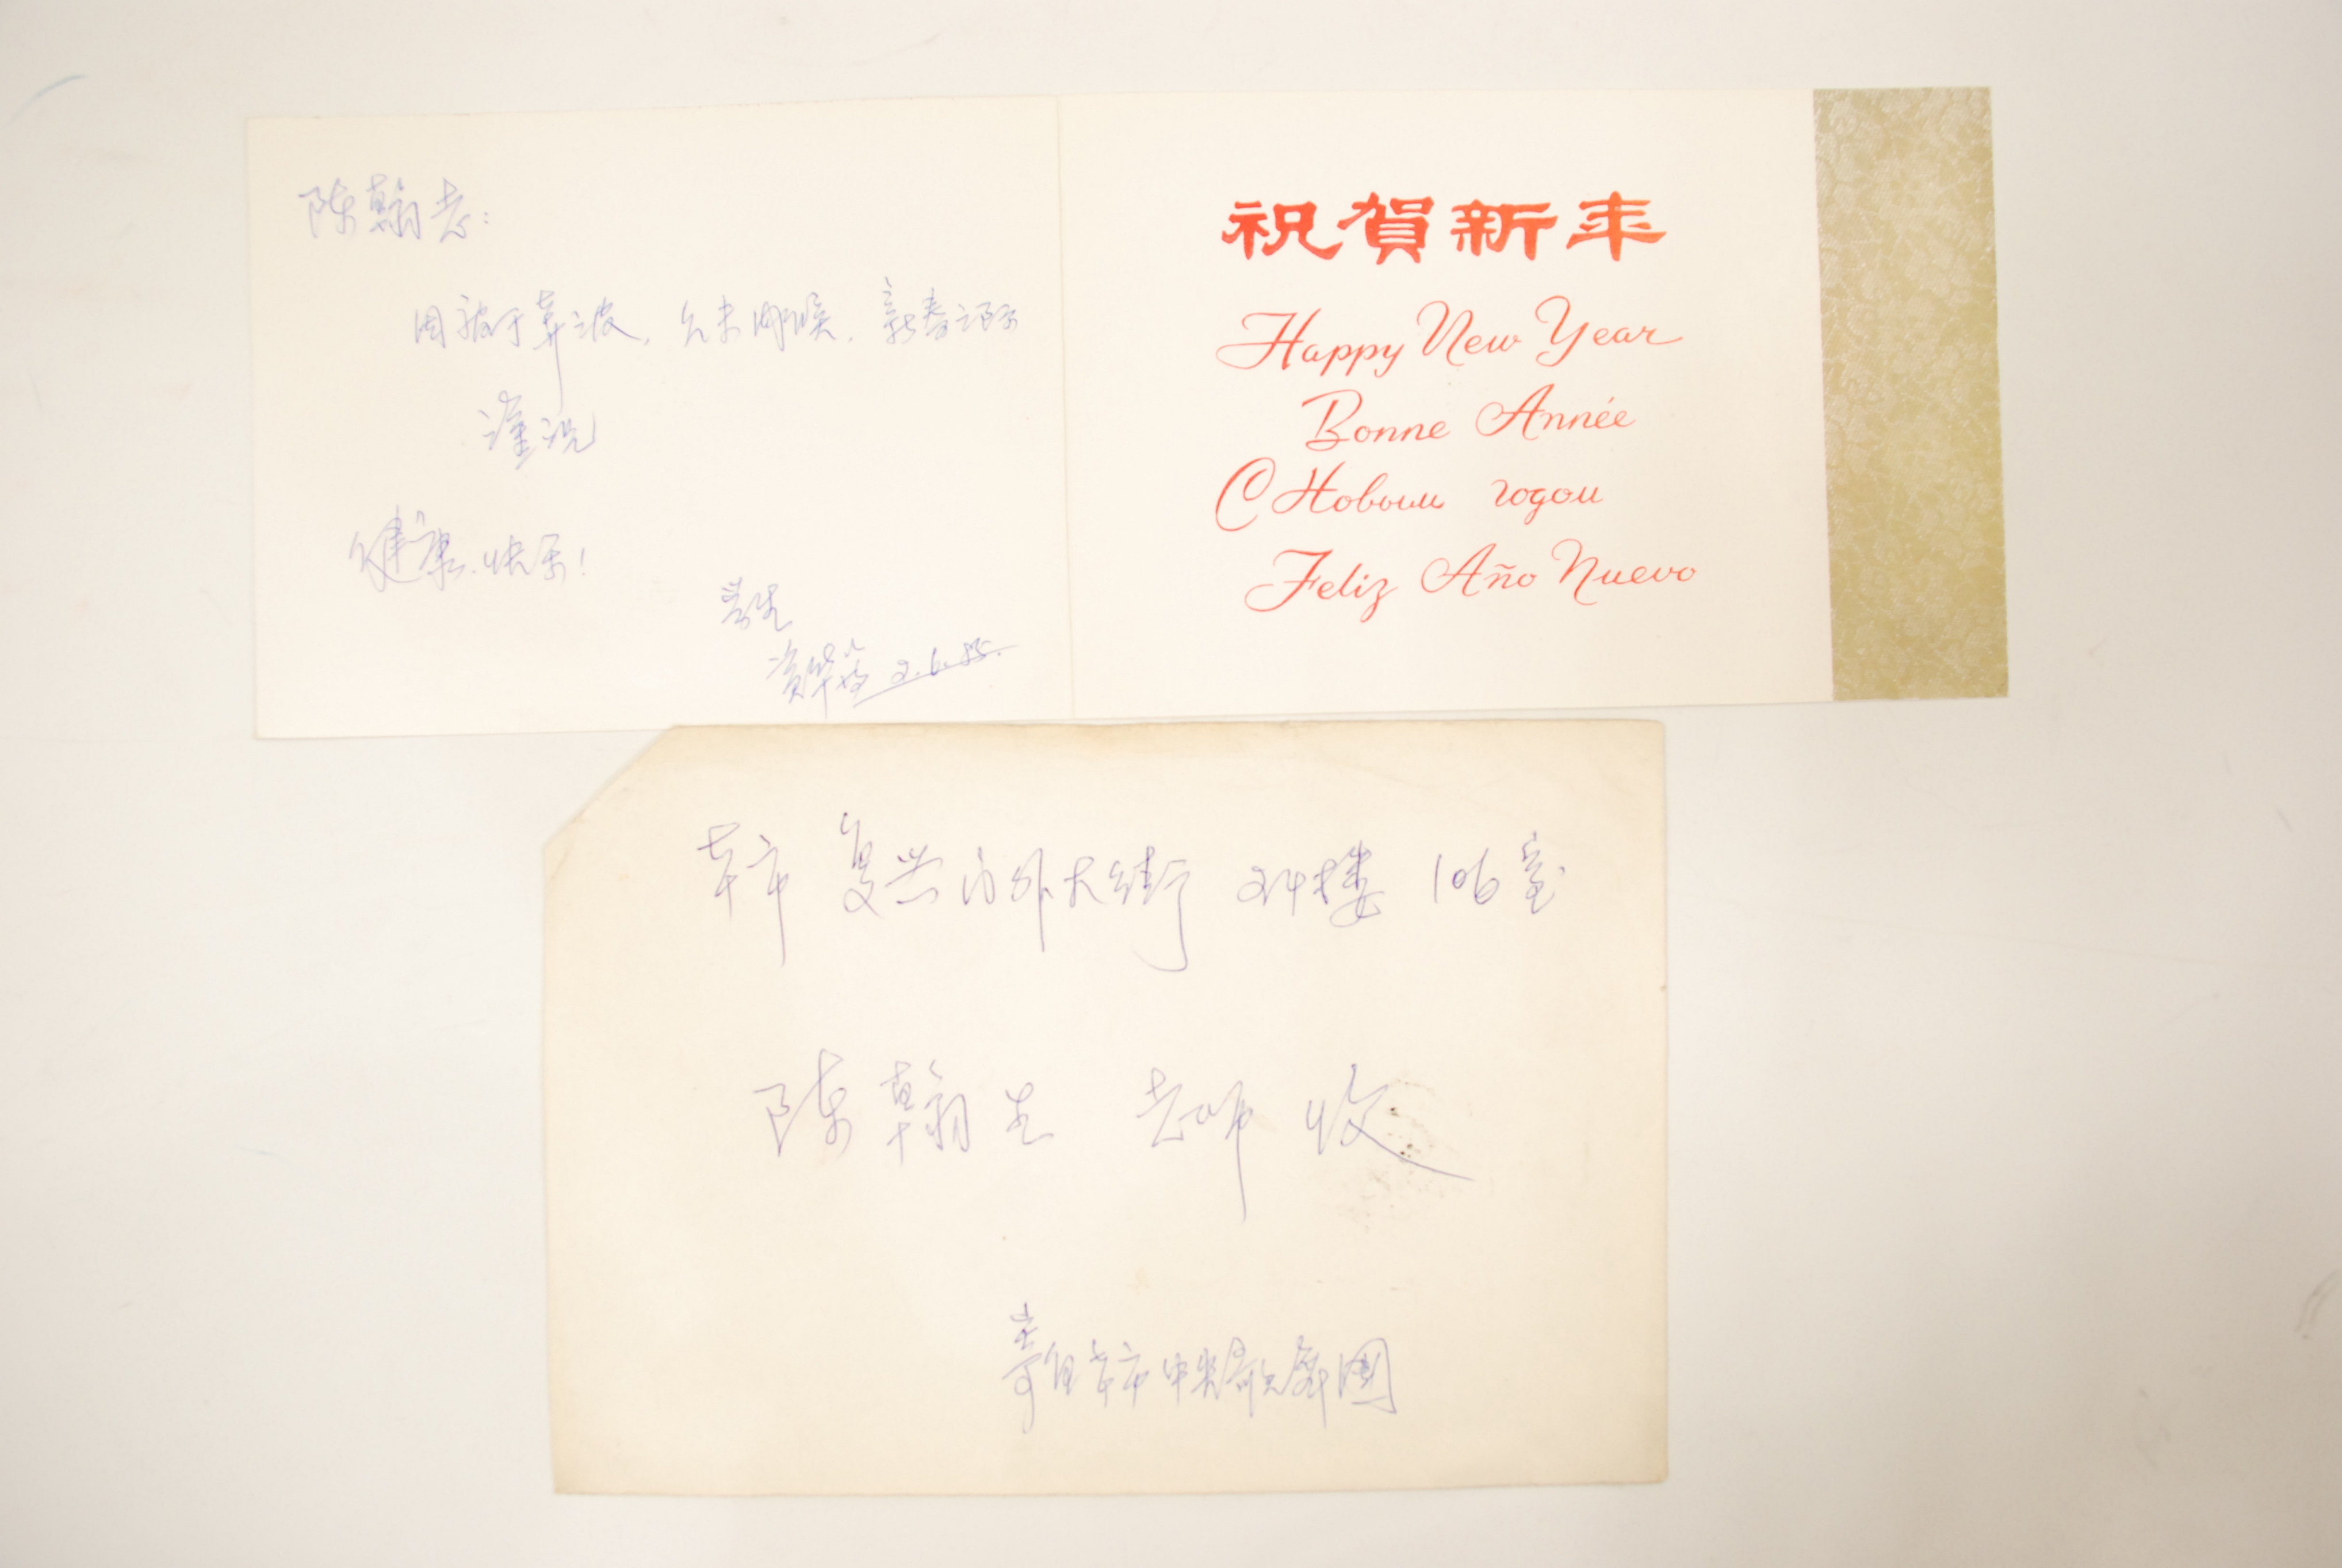 陈翰老:
因疲于奔波,久未问候.新春之际
谨祝
健康.快乐!
学生
资华筠 2.6.85.
祝賀新年
Happy New Year
Bonne Année
С Новым годом
Feliz Año Nuevo
本市 复兴门外大街 24楼 106室
陈翰笙 老师 收
寄自本市中央歌舞团